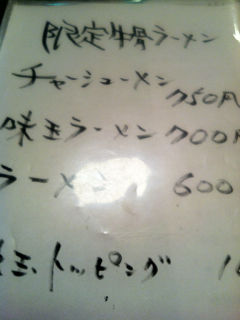 限定牛骨ラーメン
チャーシューメン 750円
味玉ラーメン 700円
ラーメン 600
玉トッピング 1